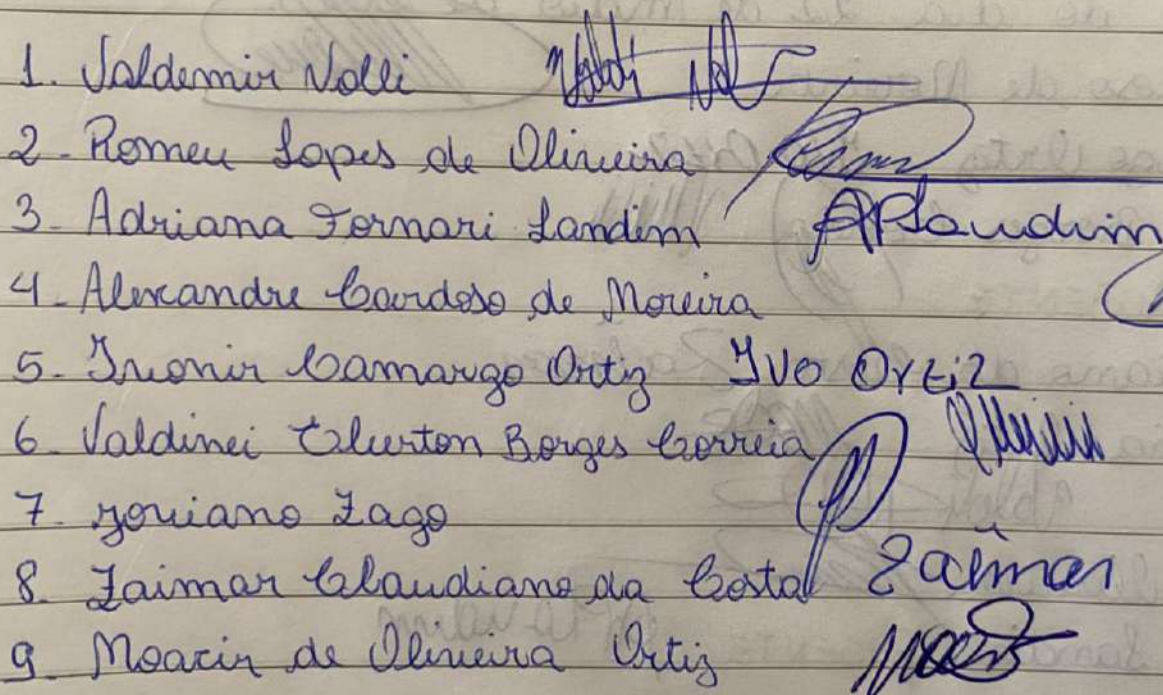 1. Valdemir Nolli
2 - Romeu Lopes de Oliveira
3 - Adriana Fornari Landim APLaudim
4 - Alexandre Cardoso de Moreira
5 - Ivonir Camargo Ortiz IVO Ortiz
6 - Valdinei Elerton Borges Correia
7 - Joviano Zago
8. Zaimar Claudiano da Costa Zaimar
9. Moacir de Oliveira Ortiz